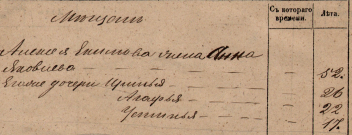 Съ котораго времени.
Лѣта.
Мещане
Алексея Екимова жена Анна
Яковлева — — 52.
Ихже дочери Иринья — — 26
Агафья — — 22
Устинья — — 17.